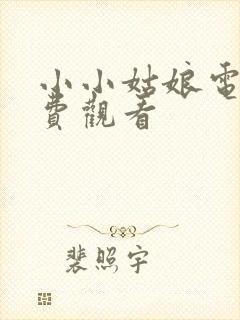 小小姑娘電
費觀看
裴照宇